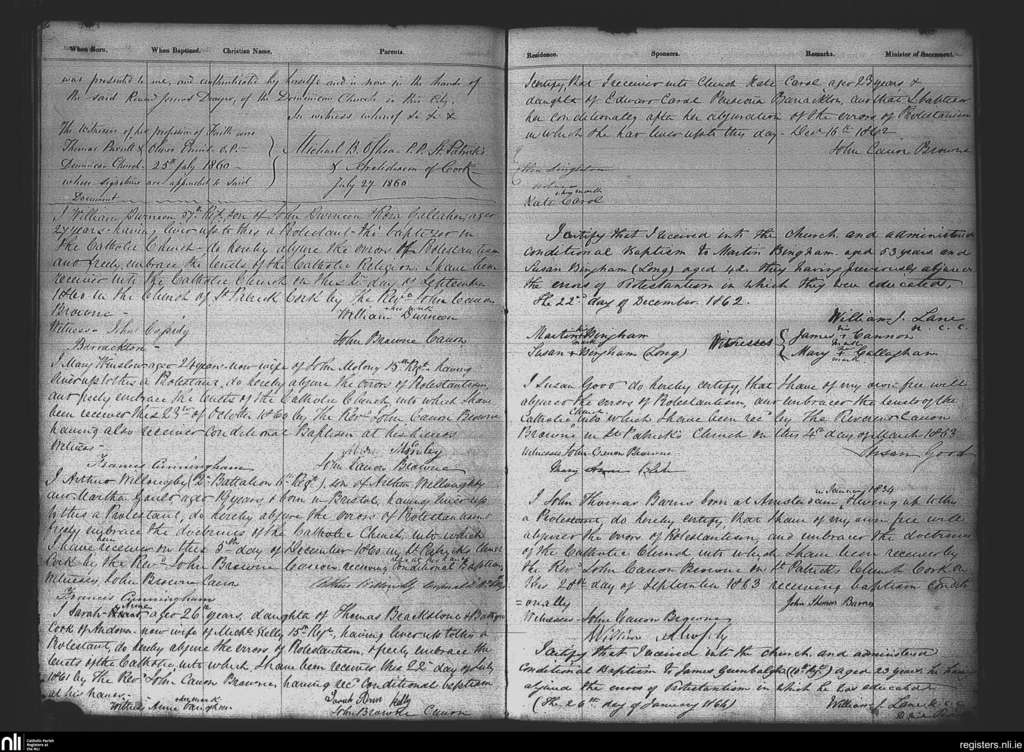 When Born. When Baptized. Christian Name. Parents.
was presented to me, and authenticated by himself and is now in the hands of
the said Revnd James Dwyer, of the Dominican Church in this City.
In witness whereof &c &c &c
The witnesses of his profession of Faith were
Thomas Burke & Oliver Power O.P.
Dominican Church 25th July 1860
whose signatures are appended to said
Document
Michael B. O'Shea P.P. St Patrick's
& Archdeacon of Cork
July 27 1860
I William Dwineon 37th Rgt, son of John Dwineon & Rose Gallagher, aged
27 years having lived up to this a Protestant tho' baptized in
the Catholic Church do hereby abjure the errors of Protestantism
and freely embrace the tenets of the Catholic Religion. I have been
received into the Catholic Church on this day September
1860 in the Church of St Patrick Cork by the Revd John Canon
Browne
William Dwineon
Witness John Cassidy
Barrackton
John Browne Canon
I Mary Winslow aged 24 years now wife of John Molony 15th Rgt having
lived up to this a Protestant, do hereby abjure the errors of Protestantism,
and freely embrace the tenets of the Catholic Church, into which I have
been received this 23rd of October 1860 by the Revd John Canon Browne
having also received conditional Baptism at his hands
Witness
Francis Cunningham
John Canon Browne
I Arthur Willoughby (2d Battalion 6th Rgt), son of Arthur Willoughby
and Martha aged 19 years & born in Bristol, having lived up
to this a Protestant, do hereby abjure the errors of Protestantism &
freely embrace the doctrines of the Catholic Church, into which
I have been received on this 3rd day of December 1860 in St Patrick's Church
Cork by the Revd John Browne Canon receiving conditional Baptism
Witnesses, John Browne Canon
Francis Cunningham
I Sarah Anne aged 26 years, daughter of Thomas Blackstone &
Cook of Andover now wife of Michl Kelly 15th Rgt, having lived up to this a
Protestant, do hereby abjure the errors of Protestantism, & freely embrace the
tenets of the Catholic, into which I have been received this 22d day of July
1861 by the Revd John Canon Browne, having recd conditional baptism
at his hands
Witness Anne Vaughan
Sarah Anne Kelly
John Browne Canon
Residence. Sponsors. Remarks. Minister of Sacrament.
I certify, that I received into Church Kate Carol aged 23 years &
daughter of Edward Carol Barrackton, and that I baptized
her conditionally after her abjuration of the errors of Protestantism
in which she had lived up to this day Decr 16th 1862
John Canon Browne
Singleton
Kate Carol
I certify that I received into the church and administered
conditional Baptism to Martin Bingham aged 53 years and
Susan Bingham (Long) aged 42 they having previously abjured
the errors of Protestantism in which they were educated.
The 22d day of December 1862.
William J. Lane
R. C. C.
Martin Bingham
Susan + Bingham (Long)
Witnesses
James + Cannon
Mary + Gallagham
I Susan Good do hereby certify, that I have of my own free will
abjured the errors of Protestantism, and embraced the tenets of the
Catholic Church into which I have been recd by the Reverend Canon
Browne in St Patrick's Church on this 4th day of March 1863
Witnesses John Canon Browne
Susan Good
Mary
in January 1834
I John Thomas Barns born at Amsterdam & living up to this
a Protestant, do hereby certify, that I have of my own free will
abjured the errors of Protestantism, and embraced the doctrines
of the Catholic Church into which I have been received by
the Revd John Canon Browne in St Patrick's Church Cork on
this 20th day of September 1863 receiving baptism condit=
=onally
John Thomas Barnes
Witnesses John Canon Browne
William Murphy
I certify that I received into the church and administered
Conditional Baptism to James aged 23 years he having
abjured the errors of Protestantism in which he was educated
(The 26th day of January 1864)
William J Lane R.C.C.
nli
Catholic Parish
Registers at
the NLI
registers.nli.ie